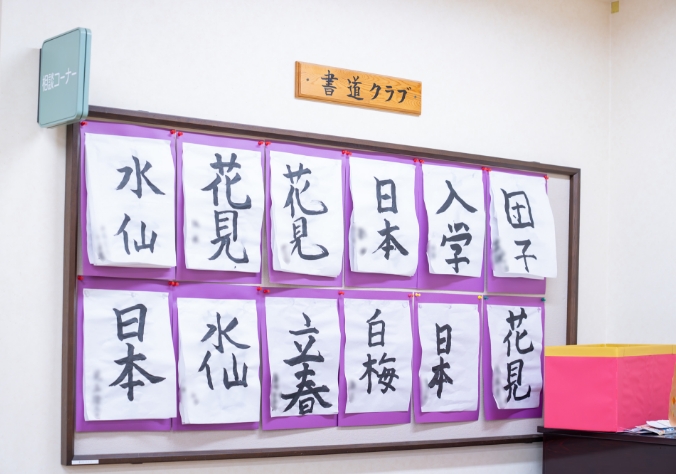 相談コーナー
書道クラブ
水仙
花見
花見
日本
入学
団子
日本
水仙
立春
白梅
日本
花見